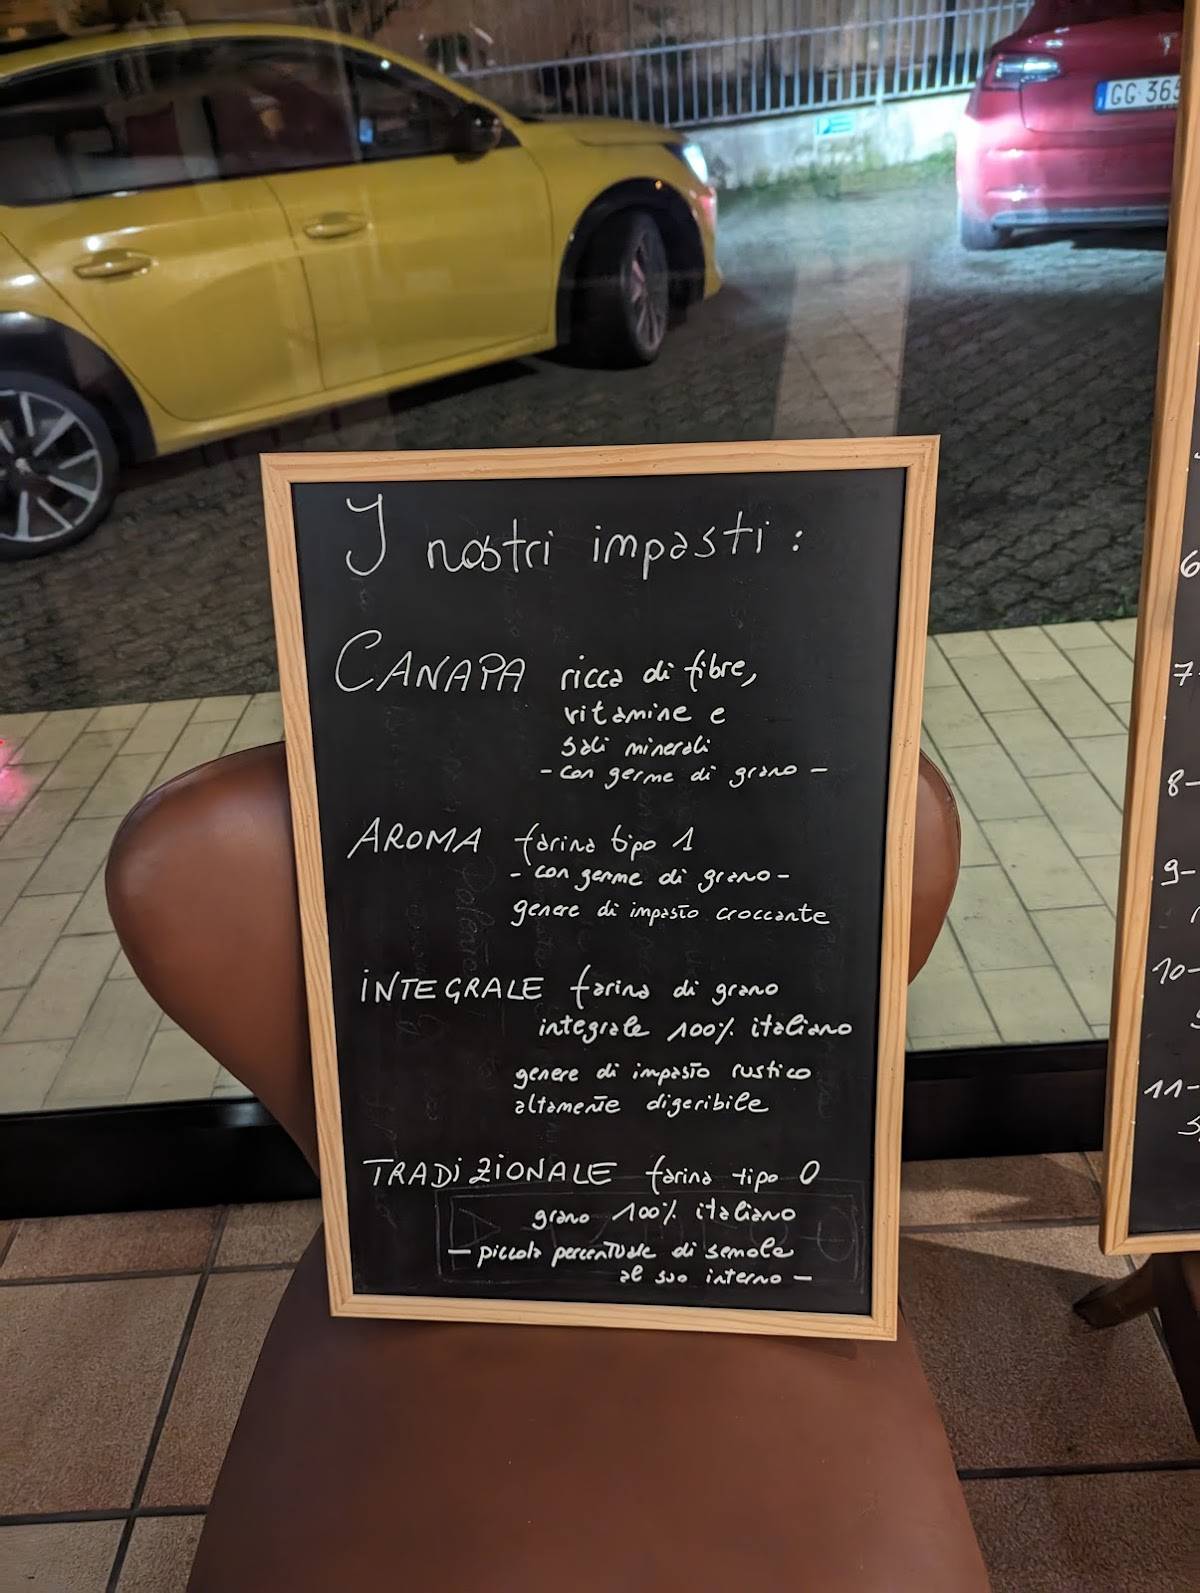 I nostri impasti :
CANAPA ricca di fibre,
vitamine e
sali minerali
- con germe di grano -
AROMA farina tipo 1
- con germe di grano -
genere di impasto croccante
INTEGRALE farina di grano
integrale 100% italiano
genere di impasto rustico
altamente digeribile
TRADIZIONALE farina tipo 0
grano 100% italiano
- piccola percentuale di semola
al suo interno -
GG 365
6
7-
8-
9-
10-
11-